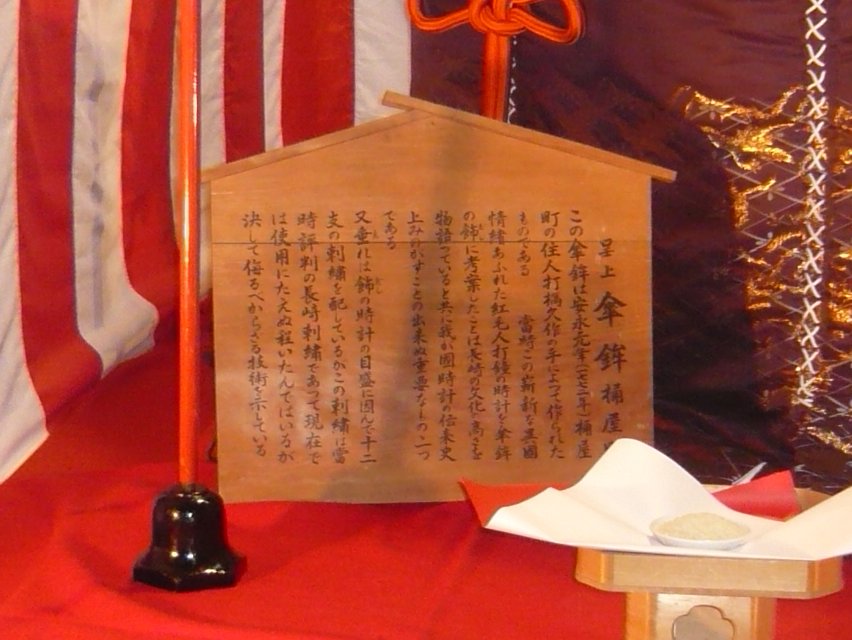 呈上 傘鉾 桶屋
この傘鉾は安永元年(一七七二年)桶屋
町の住人打橋久作の手によって作られた
ものである 當時この嶄新な異國
情緒あふれた紅毛人打鐘の時計を傘鉾
の飾に考案したことは長崎の文化の高さを
物語っていると共に我が國時計の伝来史
上みのがすことの出来ぬ重要なものの一つ
である
又垂れは飾の時計の目盛に因んで十二
支の刺繍を配しているがこの刺繍は當
時評判の長崎刺繍であって現在で
は使用にたえぬ程いたんではいるが
決して侮るべからざる技術を示している